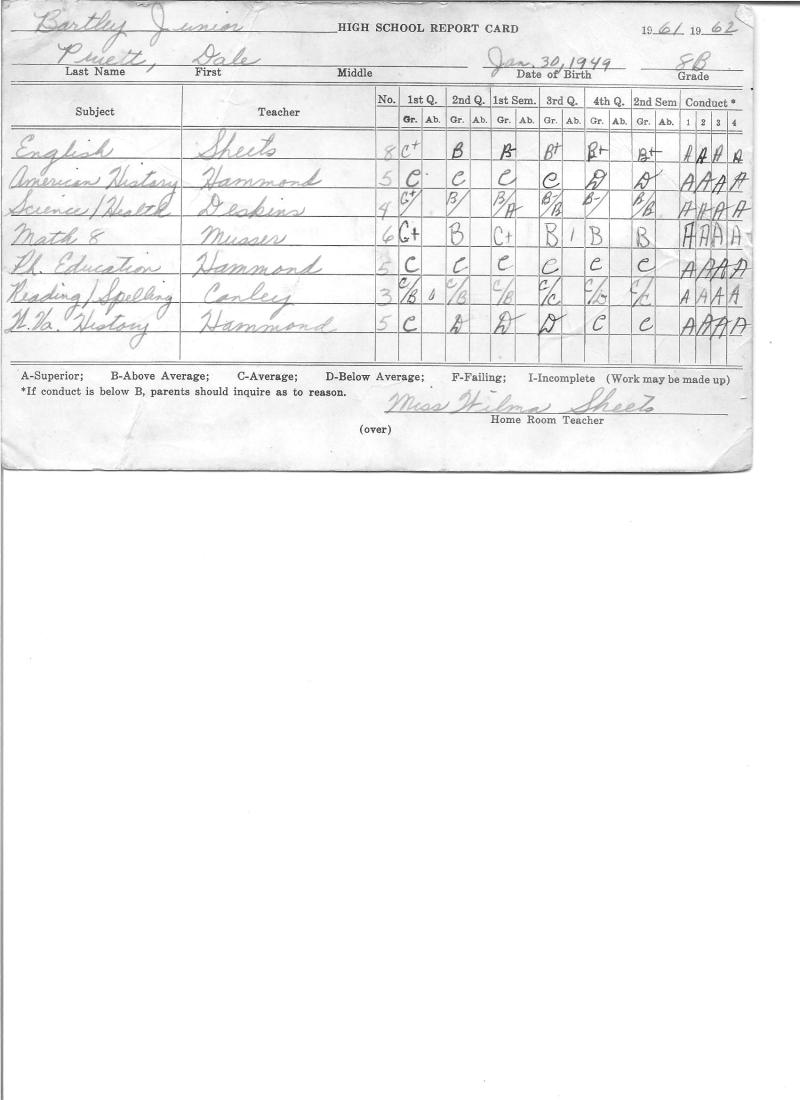 Bartley Junior HIGH SCHOOL REPORT CARD 1961 1962
Pruett, Dale Jan. 30, 1949 8B
Last Name First Middle Date of Birth Grade
Subject Teacher No. 1st Q. 2nd Q. 1st Sem. 3rd Q. 4th Q. 2nd Sem Conduct *
Gr. Ab. Gr. Ab. Gr. Ab. Gr. Ab. Gr. Ab. Gr. Ab. 1 2 3 4
English Sheets 8 C+ B B B+ B+ B+ A A A A
American History Hammond 5 C C C C D D A A A A
Science/Health Deskins 4 C+/ B/ B/A B-/B B-/ B/B A A A A
Math 8 Musser 6 C+ B C+ B 1 B B A A A A
Ph. Education Hammond 5 C C C C C C A A A A
Reading/Spelling Conley 3 C/B C/B C/B C/C C/D C/C A A A A
W. Va. History Hammond 5 C D D D C C A A A A
A-Superior; B-Above Average; C-Average; D-Below Average; F-Failing; I-Incomplete (Work may be made up)
*If conduct is below B, parents should inquire as to reason.
Miss Wilma Sheets
Home Room Teacher
(over)